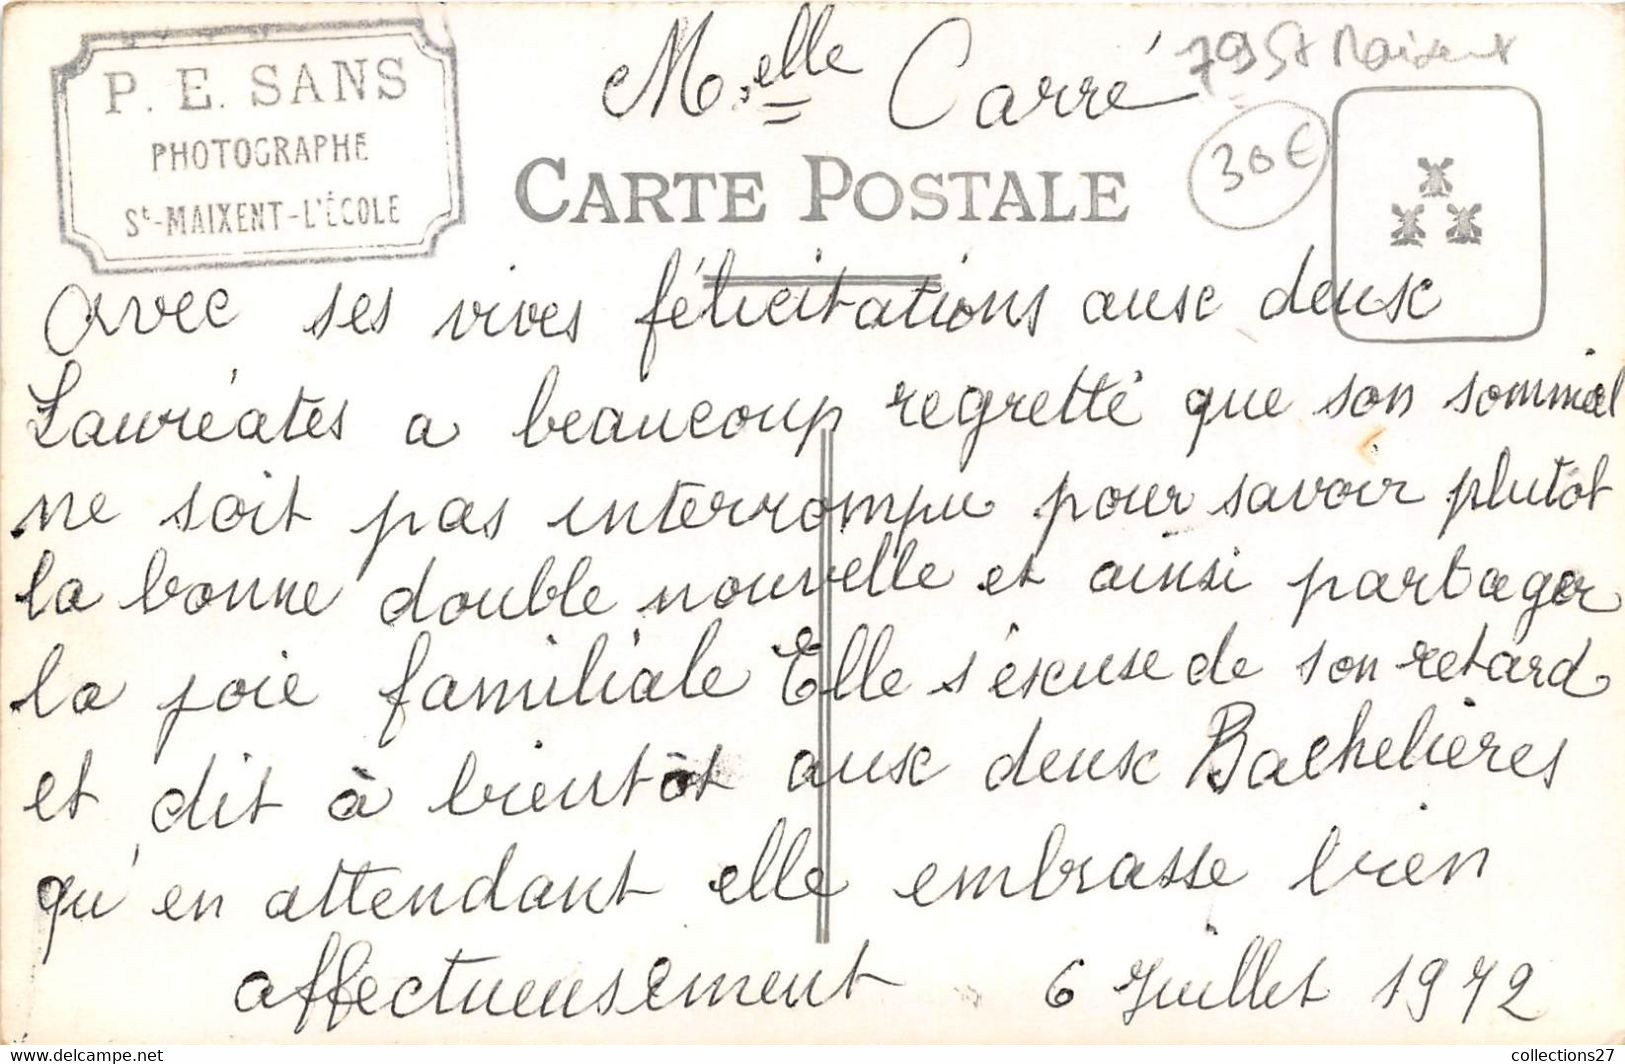 P. E. SANS
PHOTOGRAPHE
St-MAIXENT-L'ÉCOLE
Melle Carré
79 St Maixent
30€
CARTE POSTALE
avec ses vives félicitations aux deux
Lauréates a beaucoup regretté que son sommeil
ne soit pas interrompu pour savoir plutôt
la bonne double nouvelle et ainsi partager
la joie familiale Elle s'éxcuse de son retard
et dit à bientôt aux deux Bachelières
qu'en attendant elle embrasse bien
affectueusement 6 Juillet 1972
collections27